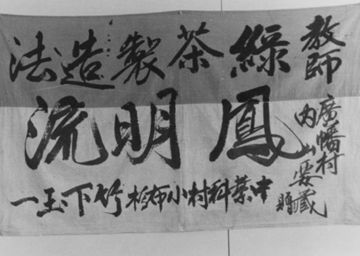 教師
緑茶製造法
鳳明流
廣幡村
内山要蔵
贈
中藁科村小布杉竹下玉一